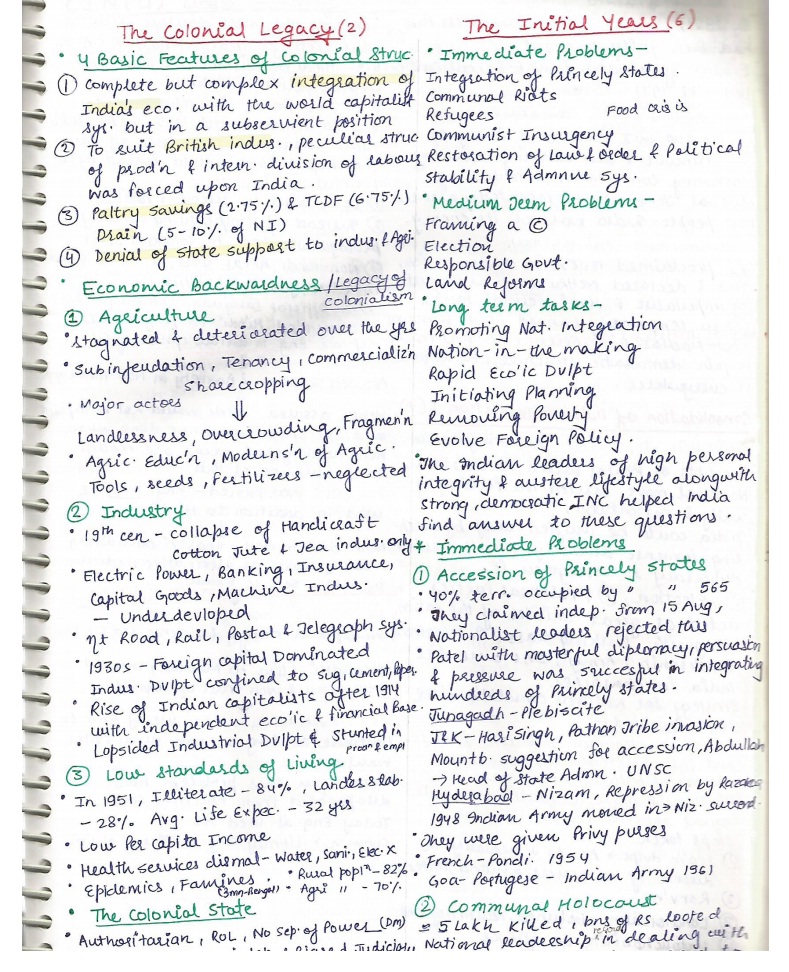 The Colonial Legacy (2)
• 4 Basic Features of Colonial Struc
① Complete but complex integration of
India's eco. with the world capitalist
sys. but in a subservient position
② To suit British indus., peculiar struc
of prod'n & intern. division of labour
was forced upon India.
③ Paltry Savings (2.75%) & TCDF (6.75%)
Drain (5-10% of NI)
④ Denial of State support to indus. & Agri.
• Economic Backwardness / Legacy of
colonialism
① Agriculture
• Stagnated & deteriorated over the yrs
• Subinfeudation, Tenancy, Commercializ'n
Sharecropping
• Major actors ⇓
Landlessness, Overcrowding, Fragmen'n
• Agric. Educ'n, Moderns'n of Agric.
Tools, seeds, fertilizers - neglected
② Industry
• 19th cen - collapse of Handicraft
cotton Jute & Tea indus. only
• Electric Power, Banking, Insurance,
Capital Goods, Machine Indus.
— Underdevloped
• nt Road, Rail, Postal & Telegraph sys.
• 1930s - Foreign capital Dominated
Indus. Dvlpt confined to Sug, Cement, Paper
• Rise of Indian capitalists after 1914
with independent eco'ic & financial base.
• Lopsided Industrial Dvlpt & Stunted in
prod & empl
③ Low Standards of Living
• In 1951, Illiterate - 84%, Landless lab.
- 28% Avg. Life Expec. - 32 yrs
• Low Per capita Income
• Health services dismal - Water, Sani., Elec. X
• Epidemics, Famines. • Rural popln - 82%
(3mn-Bengal) • Agri " - 70%
• The Colonial State
• Authoritarian, ROL, No Sep. of Power (Dm)
Judiciary
The Initial Years (6)
• Immediate Problems -
Integration of Princely States.
Communal Riots
Refugees Food crisis
Communist Insurgency
Restoration of Law & Order & Political
Stability & Admnve Sys.
• Medium Term Problems -
Framing a ©
Election
Responsible Govt.
Land Reforms
• Long term tasks -
Promoting Nat. Integration
Nation-in-the making
Rapid Eco'ic Dvlpt
Initiating Planning
Removing Poverty
Evolve Foreign Policy.
• The Indian leaders of high personal
integrity & austere lifestyle alongwith
strong, democratic INC helped India
find answer to these questions.
+ Immediate Problems
① Accession of Princely States
• 40% terr. occupied by " " 565
• They claimed indep. from 15 Aug,
• Nationalist leaders rejected this
• Patel with masterful diplomacy, persuasion
& pressure was succesful in integrating
hundreds of Princely states.
• Junagadh - Plebiscite
J&K - Hari Singh, Pathan Tribe invasion,
Mountb. suggestion for accession, Abdullah
→ Head of State Admn. UNSC
Hyderabad - Nizam, Repression by Razakar
1948 Indian Army moved in → Niz. surrend.
• They were given Privy purses
• French - Pondi. 1954
• Goa - Portugese - Indian Army 1961
② Communal Holocaust
= 5 lakh killed, bns of RS looted
National leadership in dealing with